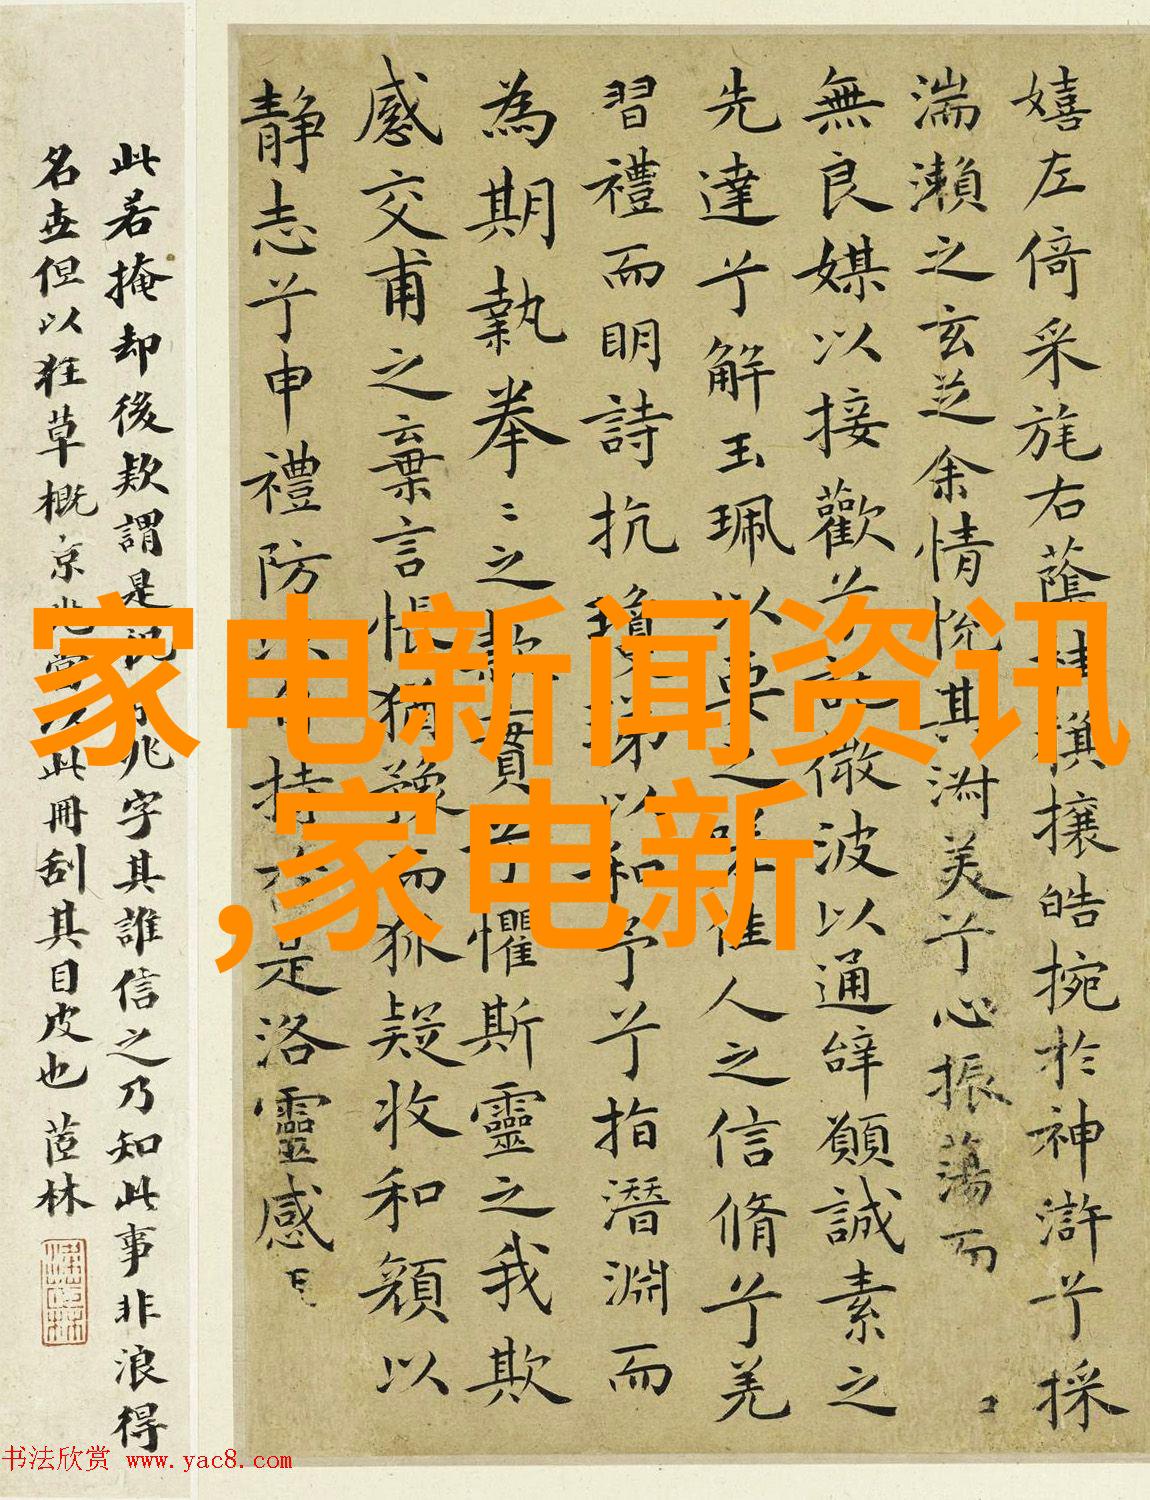 嬉左倚采旄右蔭桂旗攘皓捥於神滸兮採
湍瀨之玄芝余情悅其淑美兮心振蕩而
無良媒以接歡兮託微波以通辭願誠素之
先達兮解玉珮以要之嗟佳人之信脩兮羌
習禮而明詩抗瓊珶以和予兮指潛淵而
為期執拳〻之款實兮懼斯靈之我欺
感交甫之棄言悵猶豫而狐疑收和顏以
靜志兮申禮防以自持於是洛靈感
此若掩却後款謂是祝京兆字其誰信之乃知此事非浪得
名世但以狂草概京兆當以此冊刮其目皮也 茝林
家电新闻资讯
,家电新
书法欣赏 www.yac8.com